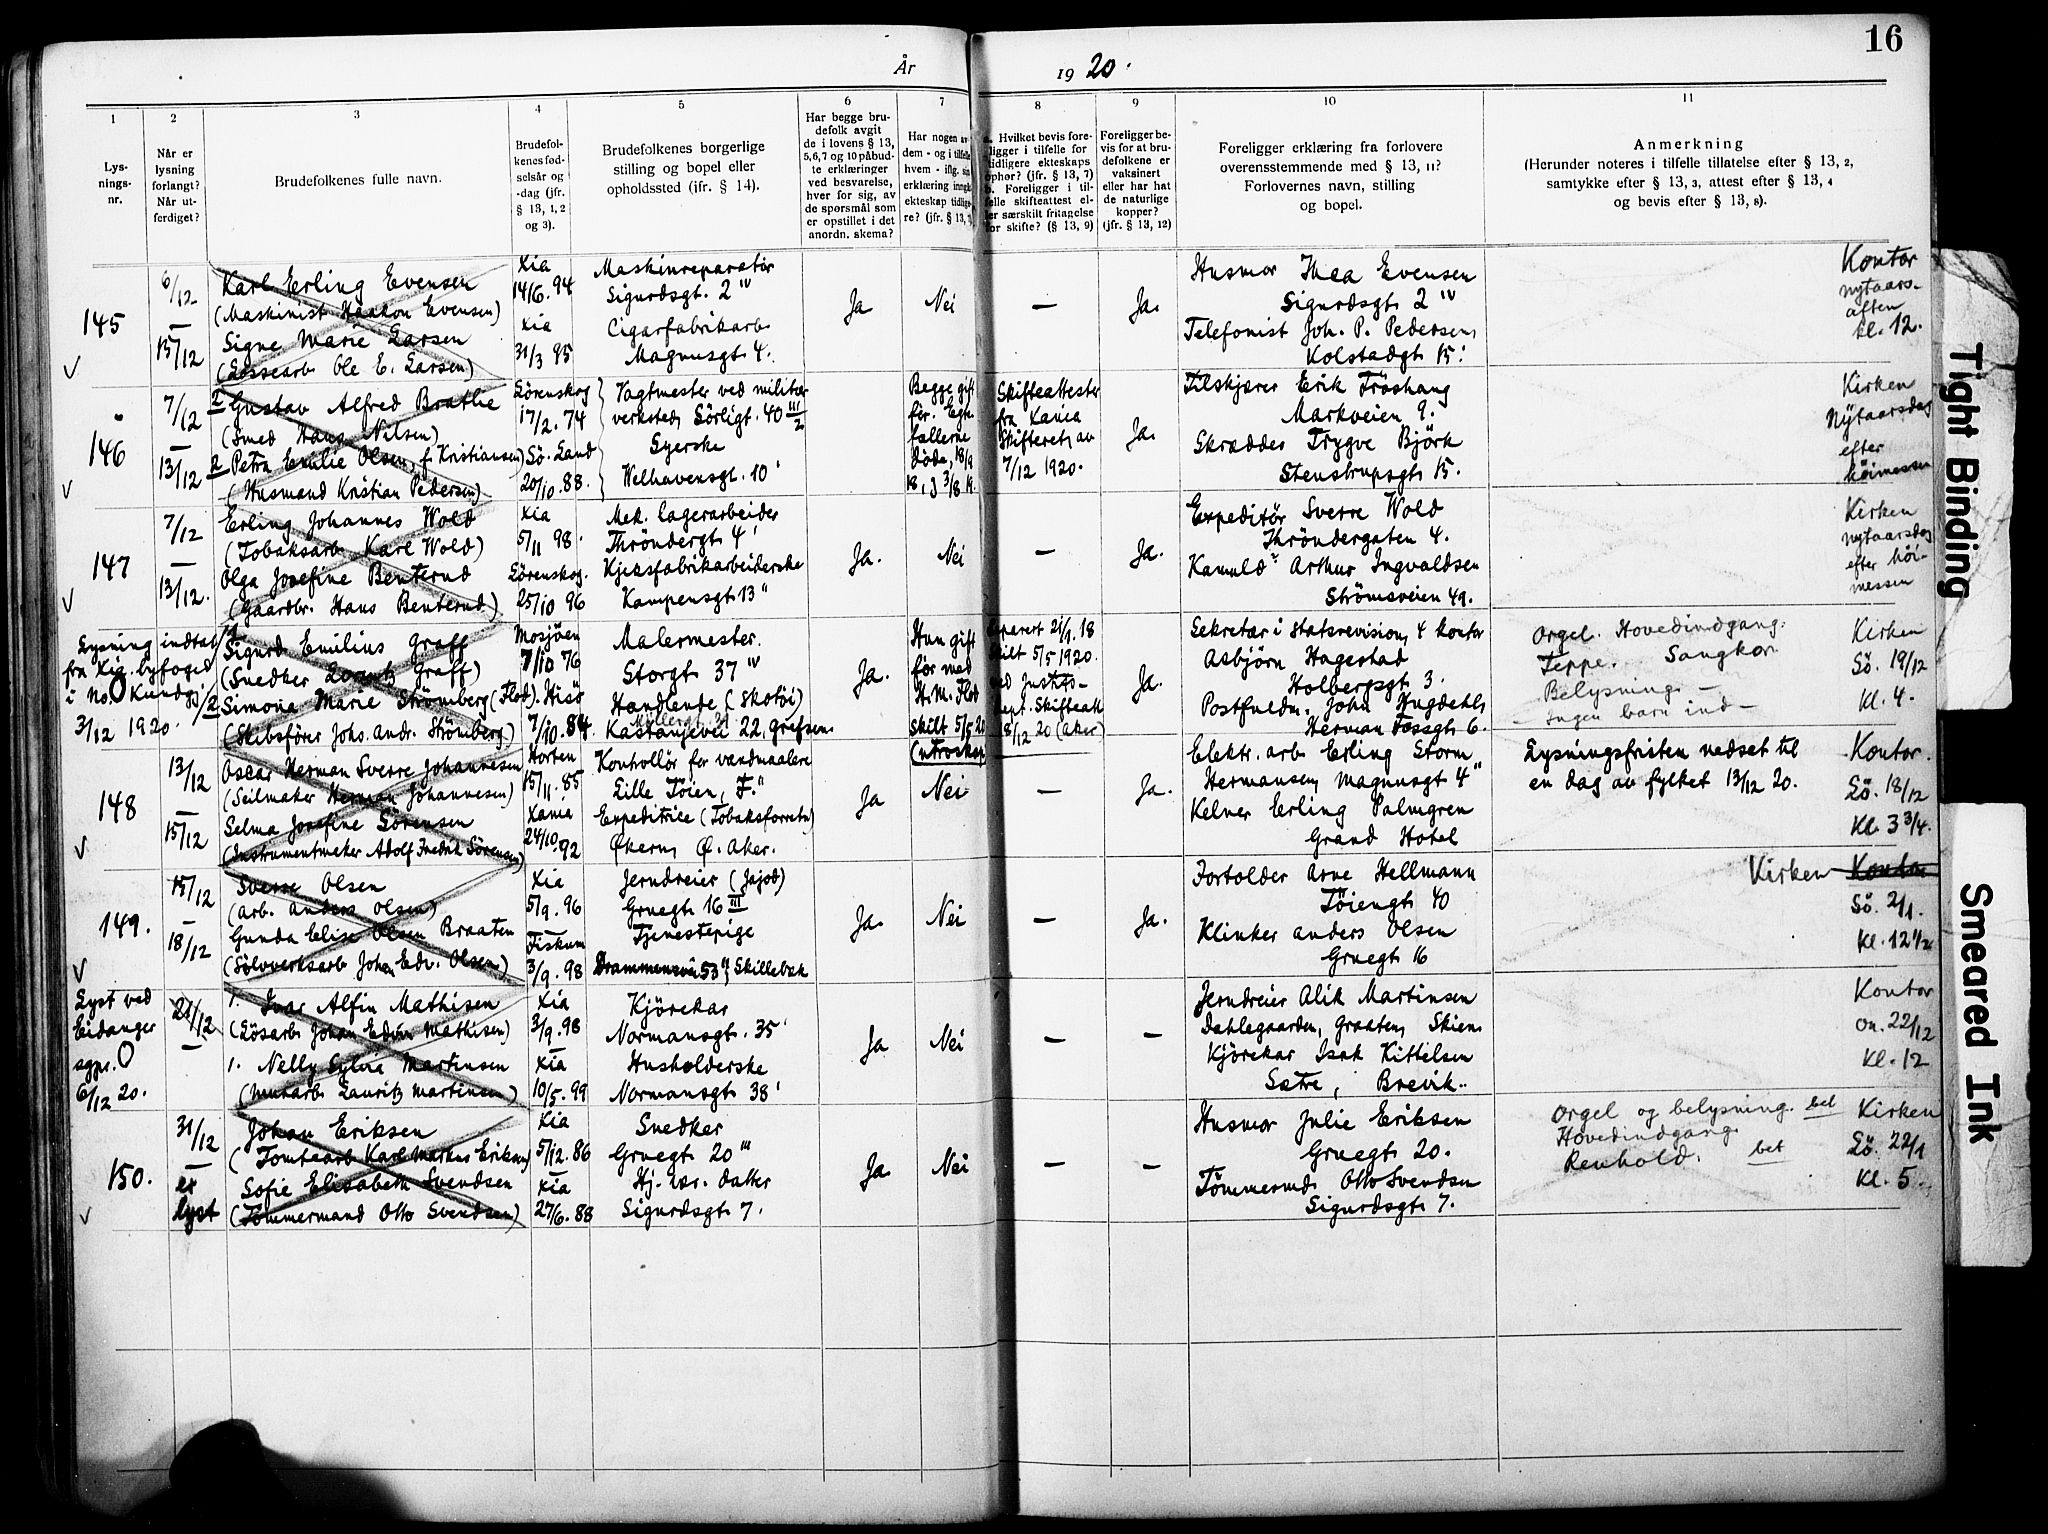 16
År 1920.
1 2 3 4 5 6 7 8 9 10 11
Lys-
nings-
nr.
Når er
lysning
forlangt?
Når ut-
ferdiget?
Brudefolkenes fulle navn.
Brudefol-
kenes fød-
selsår og
-dag (jfr.
§ 13, 1, 2
og 3).
Brudefolkenes borgerlige
stilling og bopel eller
opholdssted (jfr. § 14).
Har begge bru-
defolk avgit
de i lovens § 13,
5, 6, 7 og 10 påbud-
te erklæringer
ved besvarelse,
hver for sig, av
de spørsmål som
er opstillet i det
anordn. skema?
Har nogen av
dem - og i tilfelle
hvem - iflg. sin
erklæring inngåt
ekteskap tidlige-
re? (jfr. § 13,
a. Hvilket bevis fore-
ligger i tilfelle for
tidligere ekteskaps
ophør? (jfr. § 13, 7)
b. Foreligger i til-
felle skifteattest el-
ler særskilt fritagelse
for skifte? (§ 13, 9)
Foreligger be-
vis for at bru-
defolkene er
vaksinert
eller har hat
de naturlige
kopper?
(jfr. § 13, 12)
Foreligger erklæring fra forlovere
overensstemmende med § 13, 11?
Forlovernes navn, stilling
og bopel.
Anmerkning
(Herunder noteres i tilfelle tillatelse efter § 13, 2,
samtykke efter § 13, 3, attest efter § 13, 4
og bevis efter § 13, 8).
145
6/12
–
15/12
Karl Erling Evensen
(Maskinist Haakon Evensen)
Signe Marie Larsen
(Lossearb. Ole E. Larsen)
Kia
14/6. 94
Kia
31/3 95
Maskinreparatør
Sigurdsgt. 2 IV
Cigarfabrikarb
Magnusgt. 4.
Ja
Nei
—
Ja.
Husmor Thea Evensen
Sigurdsgt. 2 IV
Telefonist Joh. P. Pedersen,
Kolstadgt. 15.
Kontor
nytaars-
aften
kl. 12.
146
7/12
–
13/12
2 Gustav Alfred Brathe
(Smed Hans Nilsen)
2 Petra Emilie Olsen, f. Kristiansen
(Husmand Kristian Pedersen)
Lörenskog
17/2. 74
Sö. Land
20/10. 88.
Vagtmester ved militær
verksted, Sörligt. 40 III/2
Syerske
Welhavensgt. 10'
Begge gift
før. Egte-
fællerne
döde, 18/9
18, & 3/8 19.
Skifteattester
fra Kania
Skifteret, av
7/12 1920.
Ja.
Tilskjærer Erik Fröshaug
Markveien 9.
Skrædder Trygve Björk
Stenstrupsgt. 15.
Kirken
Nytaarsdag
efter
höimessen
147
7/12
–
13/12.
Erling Johannes Wold
(Tobaksarb. Karl Wold)
Olga Josefine Benterud
(Gaardbr. Hans Benterud)
Kia
5/11 98.
Lörenskog.
25/10 96
Mek. lagerarbeider
Thröndergt. 4'
Kjeksfabrikarbeiderske
Kampensgt. 13"
Ja.
Nei
—
Ja.
Expeditör Sverre Wold
Thröndergaten 4.
Arthur Ingvaldsen
Strömsveien 49.
Kirken
nytaarsdag
efter höi-
messen
Lysning indtat
fra Kia. byfoged
i No. Kundgj.
3/12 1920.
Sigurd Emilius Graff
(Snedker Lorentz Graff)
/2 Simona Marie Strömberg (Flod).
(Skibsförer Johs. Andr. Strömberg)
Mosjöen
7/10 76
Hisö
7/10. 84.
Malermester.
Storgt. 37 IV
Handlende (Skotöi)
Möllergt.
Kastanjevei 22, Grefsen
Ja.
Hun gift
för med
H. M. Flod
Skilt 5/5 20
(utroskap)
Separert 21/1. 18
Skilt 5/5 1920.
ved Justis-
dept. Skifteatt.
18/12 20 (Aker)
Ja.
Sekretær i Statsrevision, 4 kontor
Asbjörn Hagestad
Holbergsgt. 3.
Postfuldm. John Hugdahl,
Herman Fossgt. 6.
Orgel. Hovedindgang.
Teppe. Sangkor
Belysning –
– Ingen barn ind –
Kirken
Sö. 19/12
Kl. 4.
148
13/12
–
15/12
Oscar Herman Sverre Johannesen
(Seilmaker Herman Johannesen)
Selma Josefine Sörensen
(Instrumentmaker Adolf Fredrik Sörensen)
Horten
15/11. 85
Kania
24/10. 92
Kontrollør for vandmaalere
Lille Töien, F."
Expeditrice (Tobaksforretn)
Økern, Ø. Aker.
Ja
Nei
—
Ja.
Elektr. arb. Erling Storm
Hermansen, Magnusgt. 4"
Kelner Erling Palmgren
Grand Hotel
Lysningsfristen nedset til
en dag av fylket 13/12 20.
Kontor.
Lö. 18/12
Kl. 3 3/4.
149.
15/12
–
18/12
Sverre Olsen
(Arb. Anders Olsen)
Gunda Elise Olsen Braaten
(Sölvverksarb Johan Edv. Olsen)
Kia
5/9. 96
Fiskum
3/9. 98
Jerndreier
Gruegt. 16 III
Tjenestepige
Drammensvei 53", Skillebæk
Ja.
Nei
—
Ja.
Fortolder Arne Hellmann
Töiengt. 40
Klinker Anders Olsen
Gruegt. 16
Kirken Kontor
Sö. 2/1.
Kl. 12 1/2
Lyst ved
Eidanger
sgpr.
6/12 20.
21/12
–
1. Ivar Alfin Mathisen
(Lösarb. Johan Edvin Mathisen)
1. Nelly Sylvia Martinsen
(Murarb. Lauritz Martinsen)
Kia
3/9. 98
Kia
10/5. 99
Kjörekar
Normansgt. 35'
Husholderske
Normansgt. 38'
Ja
Nei
—
–
Jerndreier Alik Martinsen
Dahlegaarden, Graaten, Skien
Kjörekar Isak Kittelsen
Sætre, Brevik.
Kontor
On. 22/12
Kl. 12
150.
31/12
–
er
lyst
Johan Eriksen
(Tomtearb. Karl Markus Eriksen)
Sofie Elisabeth Svendsen
(Tömmermand Otto Svendsen)
Kia
5/12. 86
Kia
27/6. 88
Snedker
Gruegt. 20 III
Hj. vær. datter
Sigurdsgt. 7.
Ja
Nei
—
–
Husmor Julie Eriksen
Gruegt. 20.
Tömmermd. Otto Svendsen
Sigurdsgt. 7.
Orgel og belysning. bet
Hovedindgang
Renhold. bet
Kirken
Lö. 22/1
Kl. 5.
Tight Binding
Smeared Ink